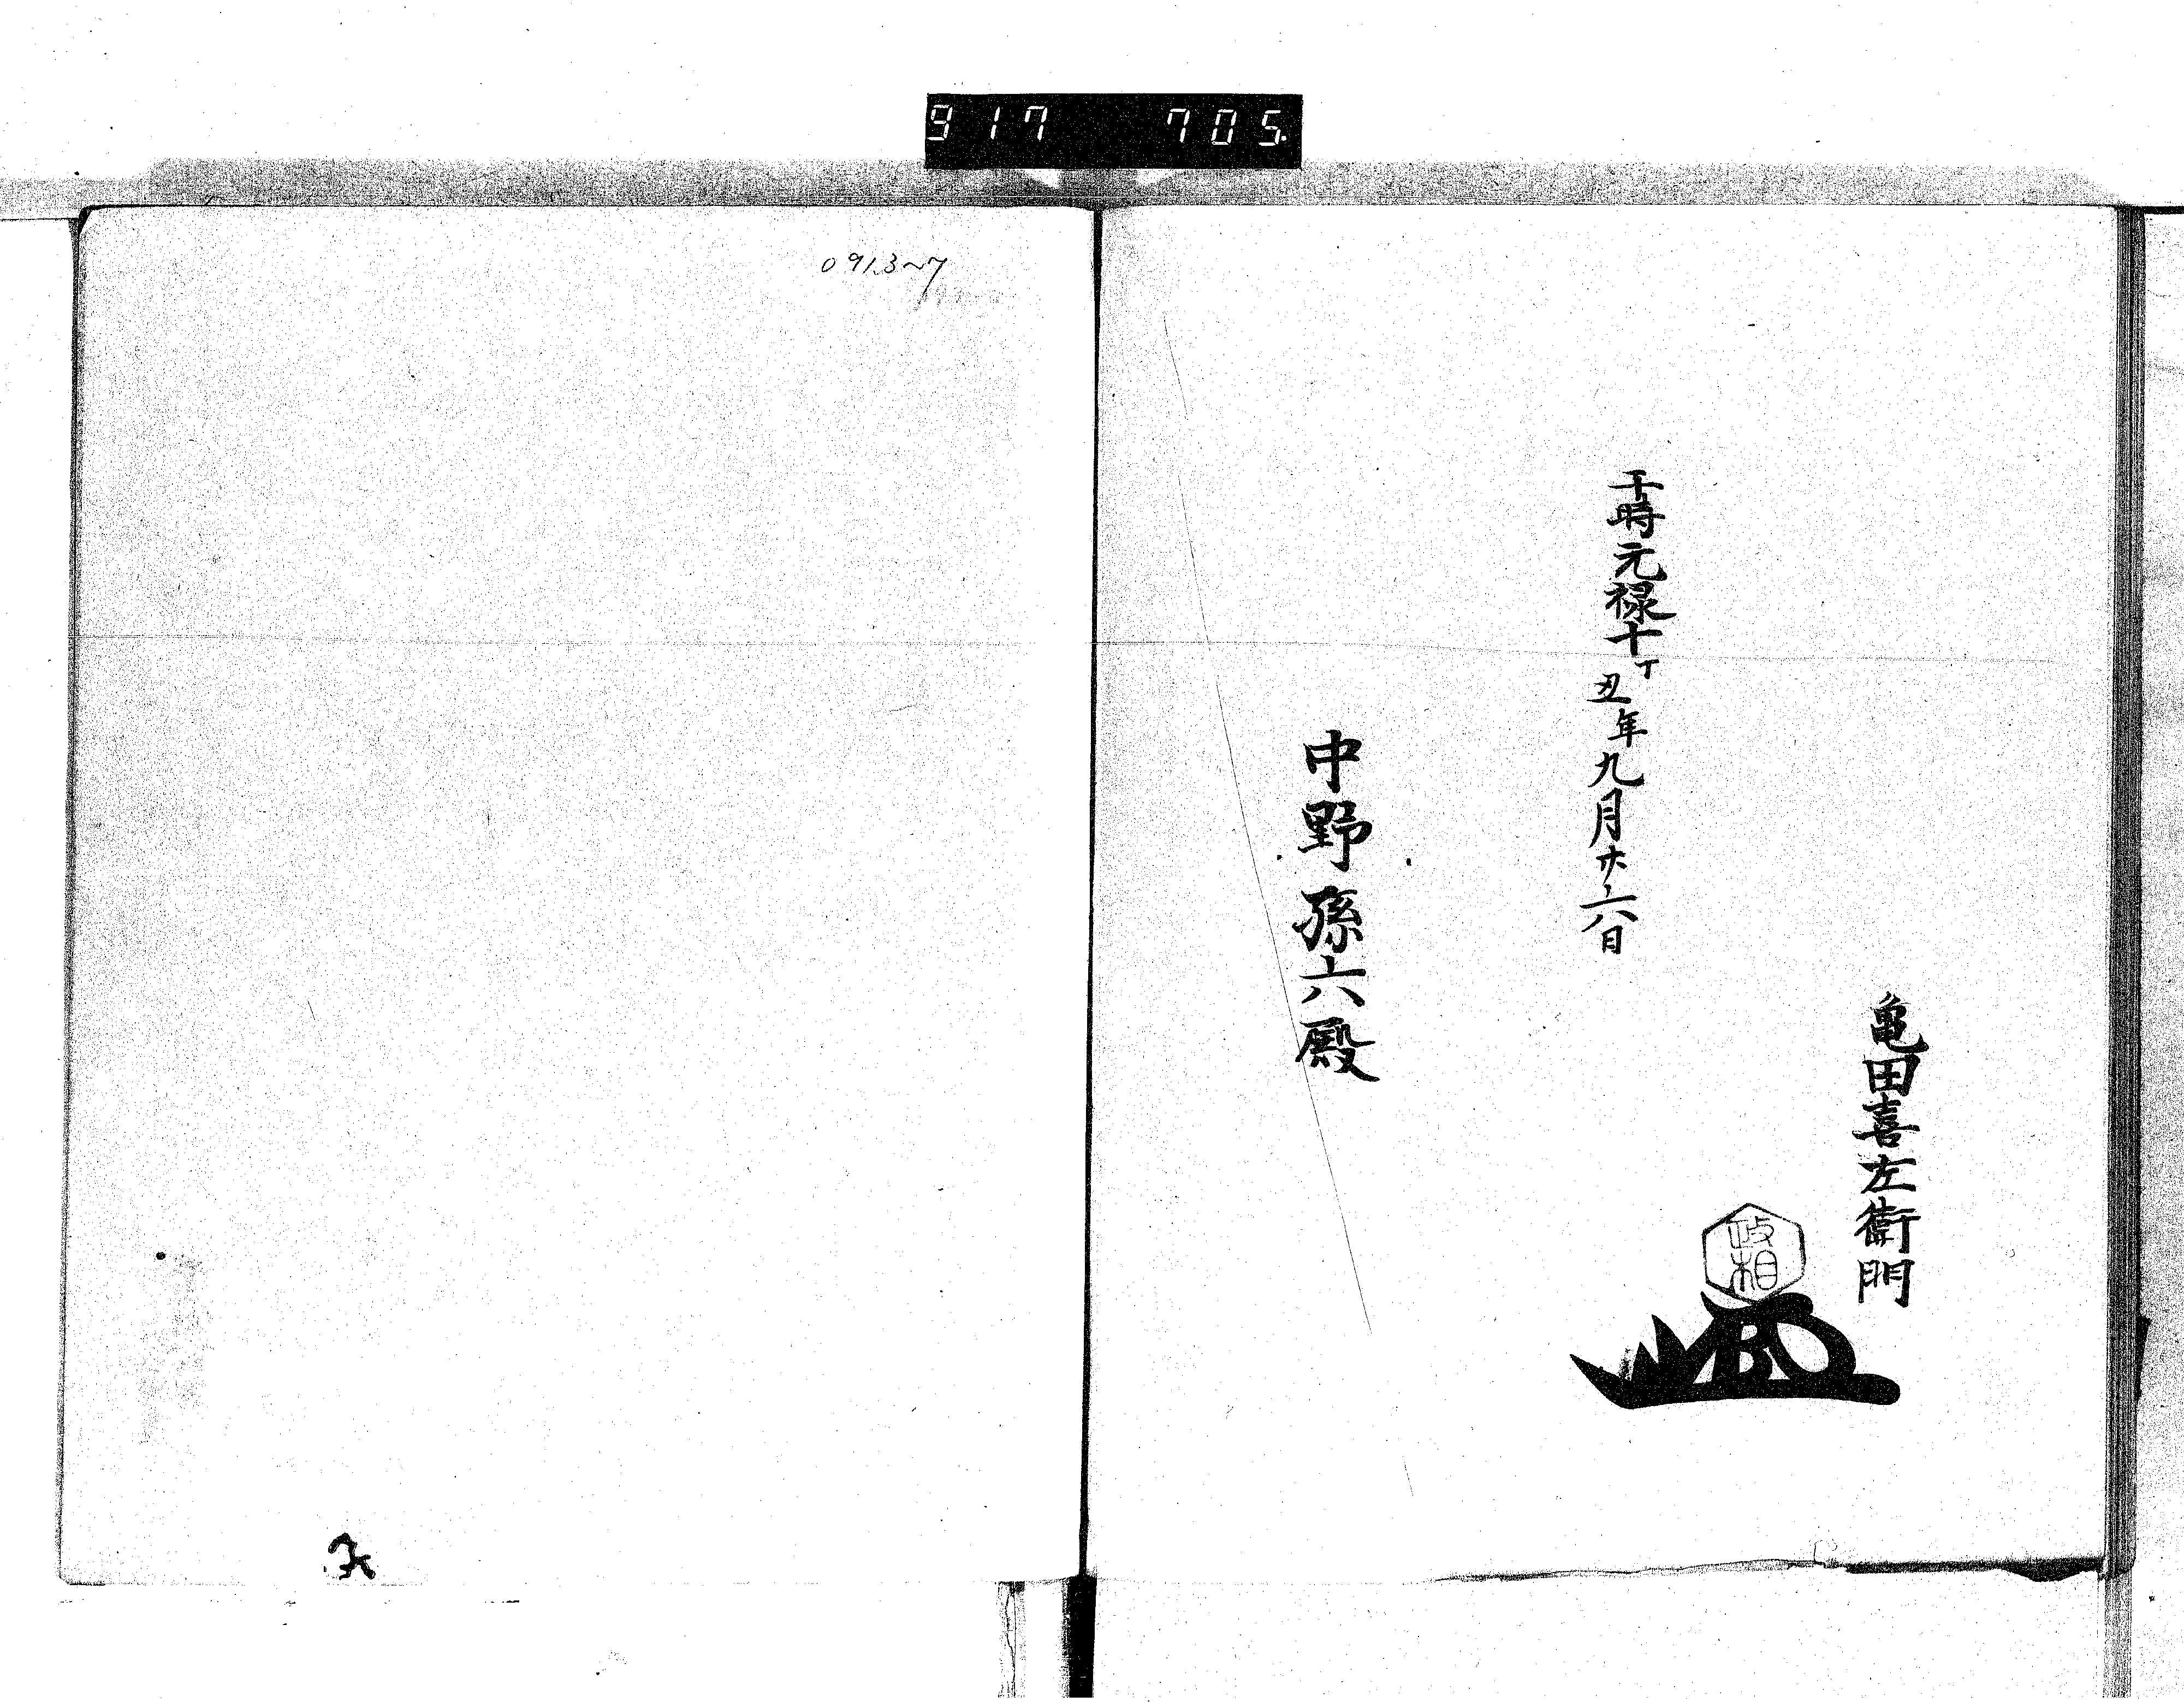 917 705
亀田喜左衛門
政相
于時元禄十丁丑年九月廿六日
中野孫六殿
091.3~7